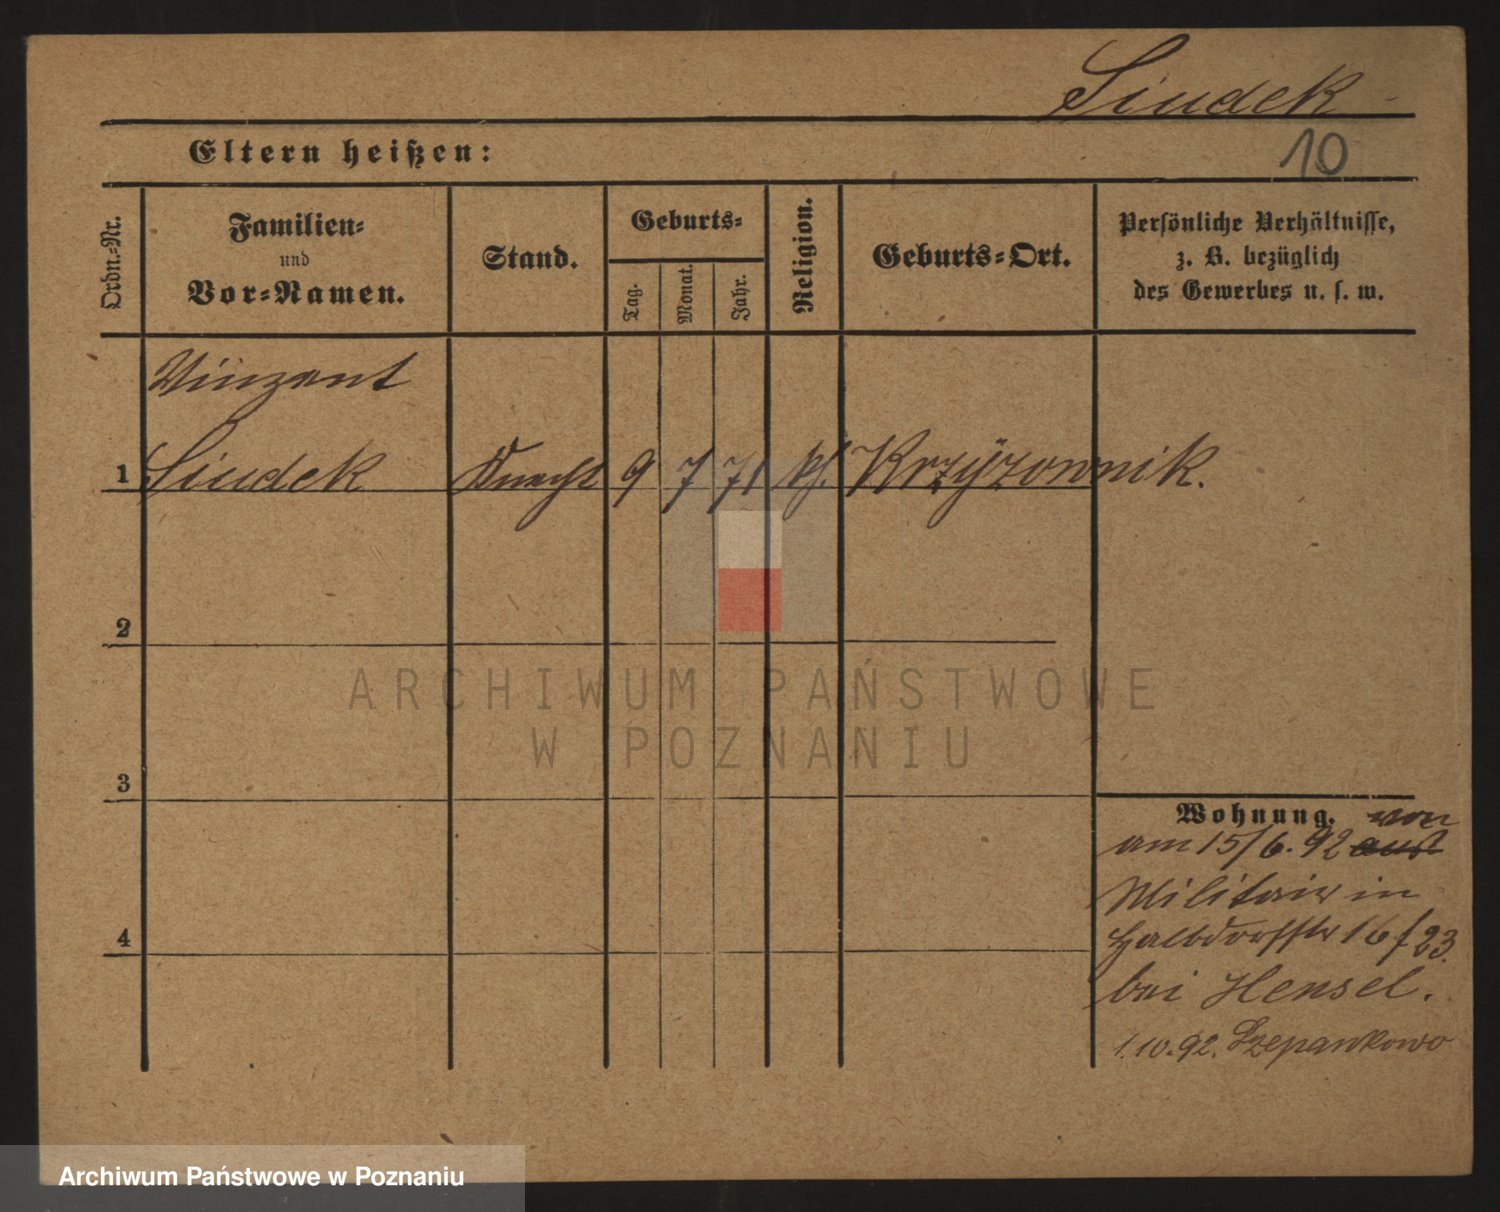 Siudek
Eltern heißen:
10
Ordn.-Nr.
Familien-
und
Vor-Namen.
Stand.
Geburts-
Tag.
Monat.
Jahr.
Religion.
Geburts-Ort.
Persönliche Verhältnisse,
z. B. bezüglich
des Gewerbes u. s. w.
Vinzent
1 Siudek Knecht 9 7 71 kf. Krzyżownik.
2
3
4
Wohnung. von
am 15/6. 92 aus
Militair in
Halbdorfstr 16/23.
bei Hensel.
1.10.92. Szepankowo
ARCHIWUM PAŃSTWOWE
W POZNANIU
Archiwum Państwowe w Poznaniu